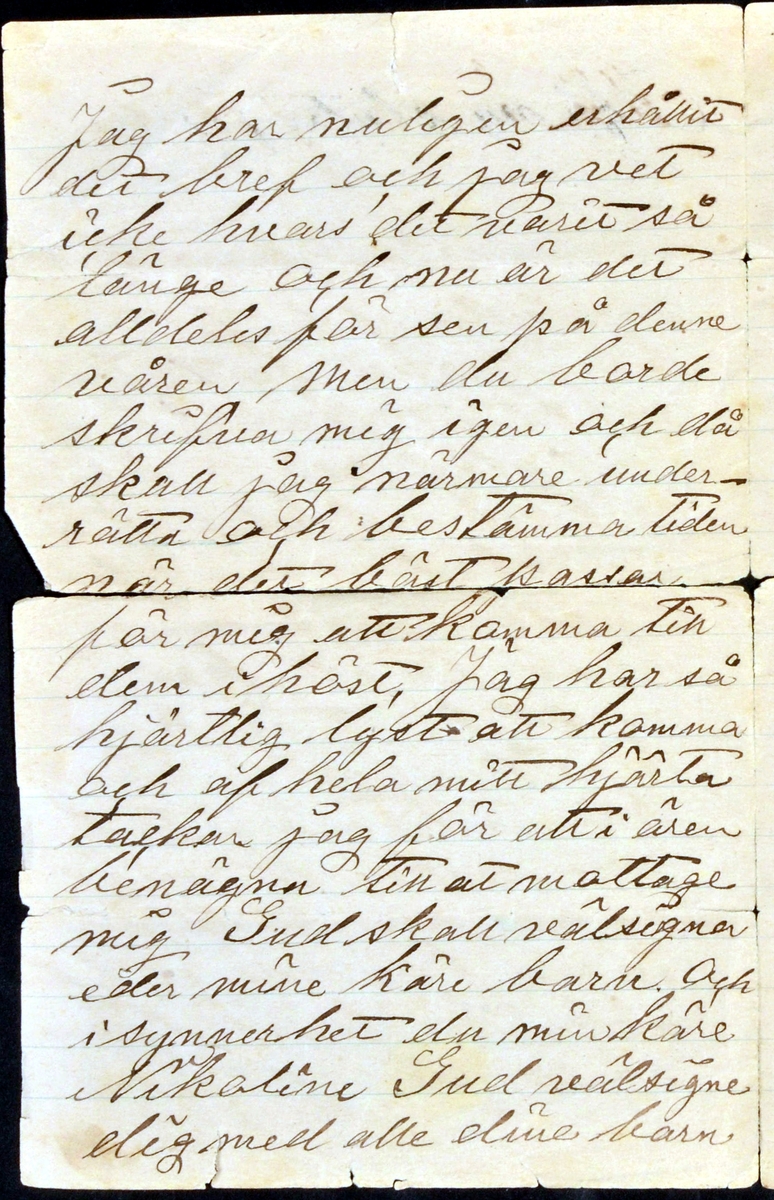 Jag har nuligen erhållit
dit bref och jag vet
icke hvars det varit så
länge och nu är det
alldeles för sen på denne
våren men du borde
skrifva mig igen och då
skall jag närmare under-
rätta och bestämma tiden
när det bäst passar
för mig att komma till
dem i höst, Jag har så
hjärtlig lyst att komma
och af hela mitt hjärta
tackar jag för att i ären
benägna till at mottage
mig Gud skall välsigna
eder mine käre barn. och
i synnerhet du min käre
Nikoline Gud välsigne
dig med alle dine barn